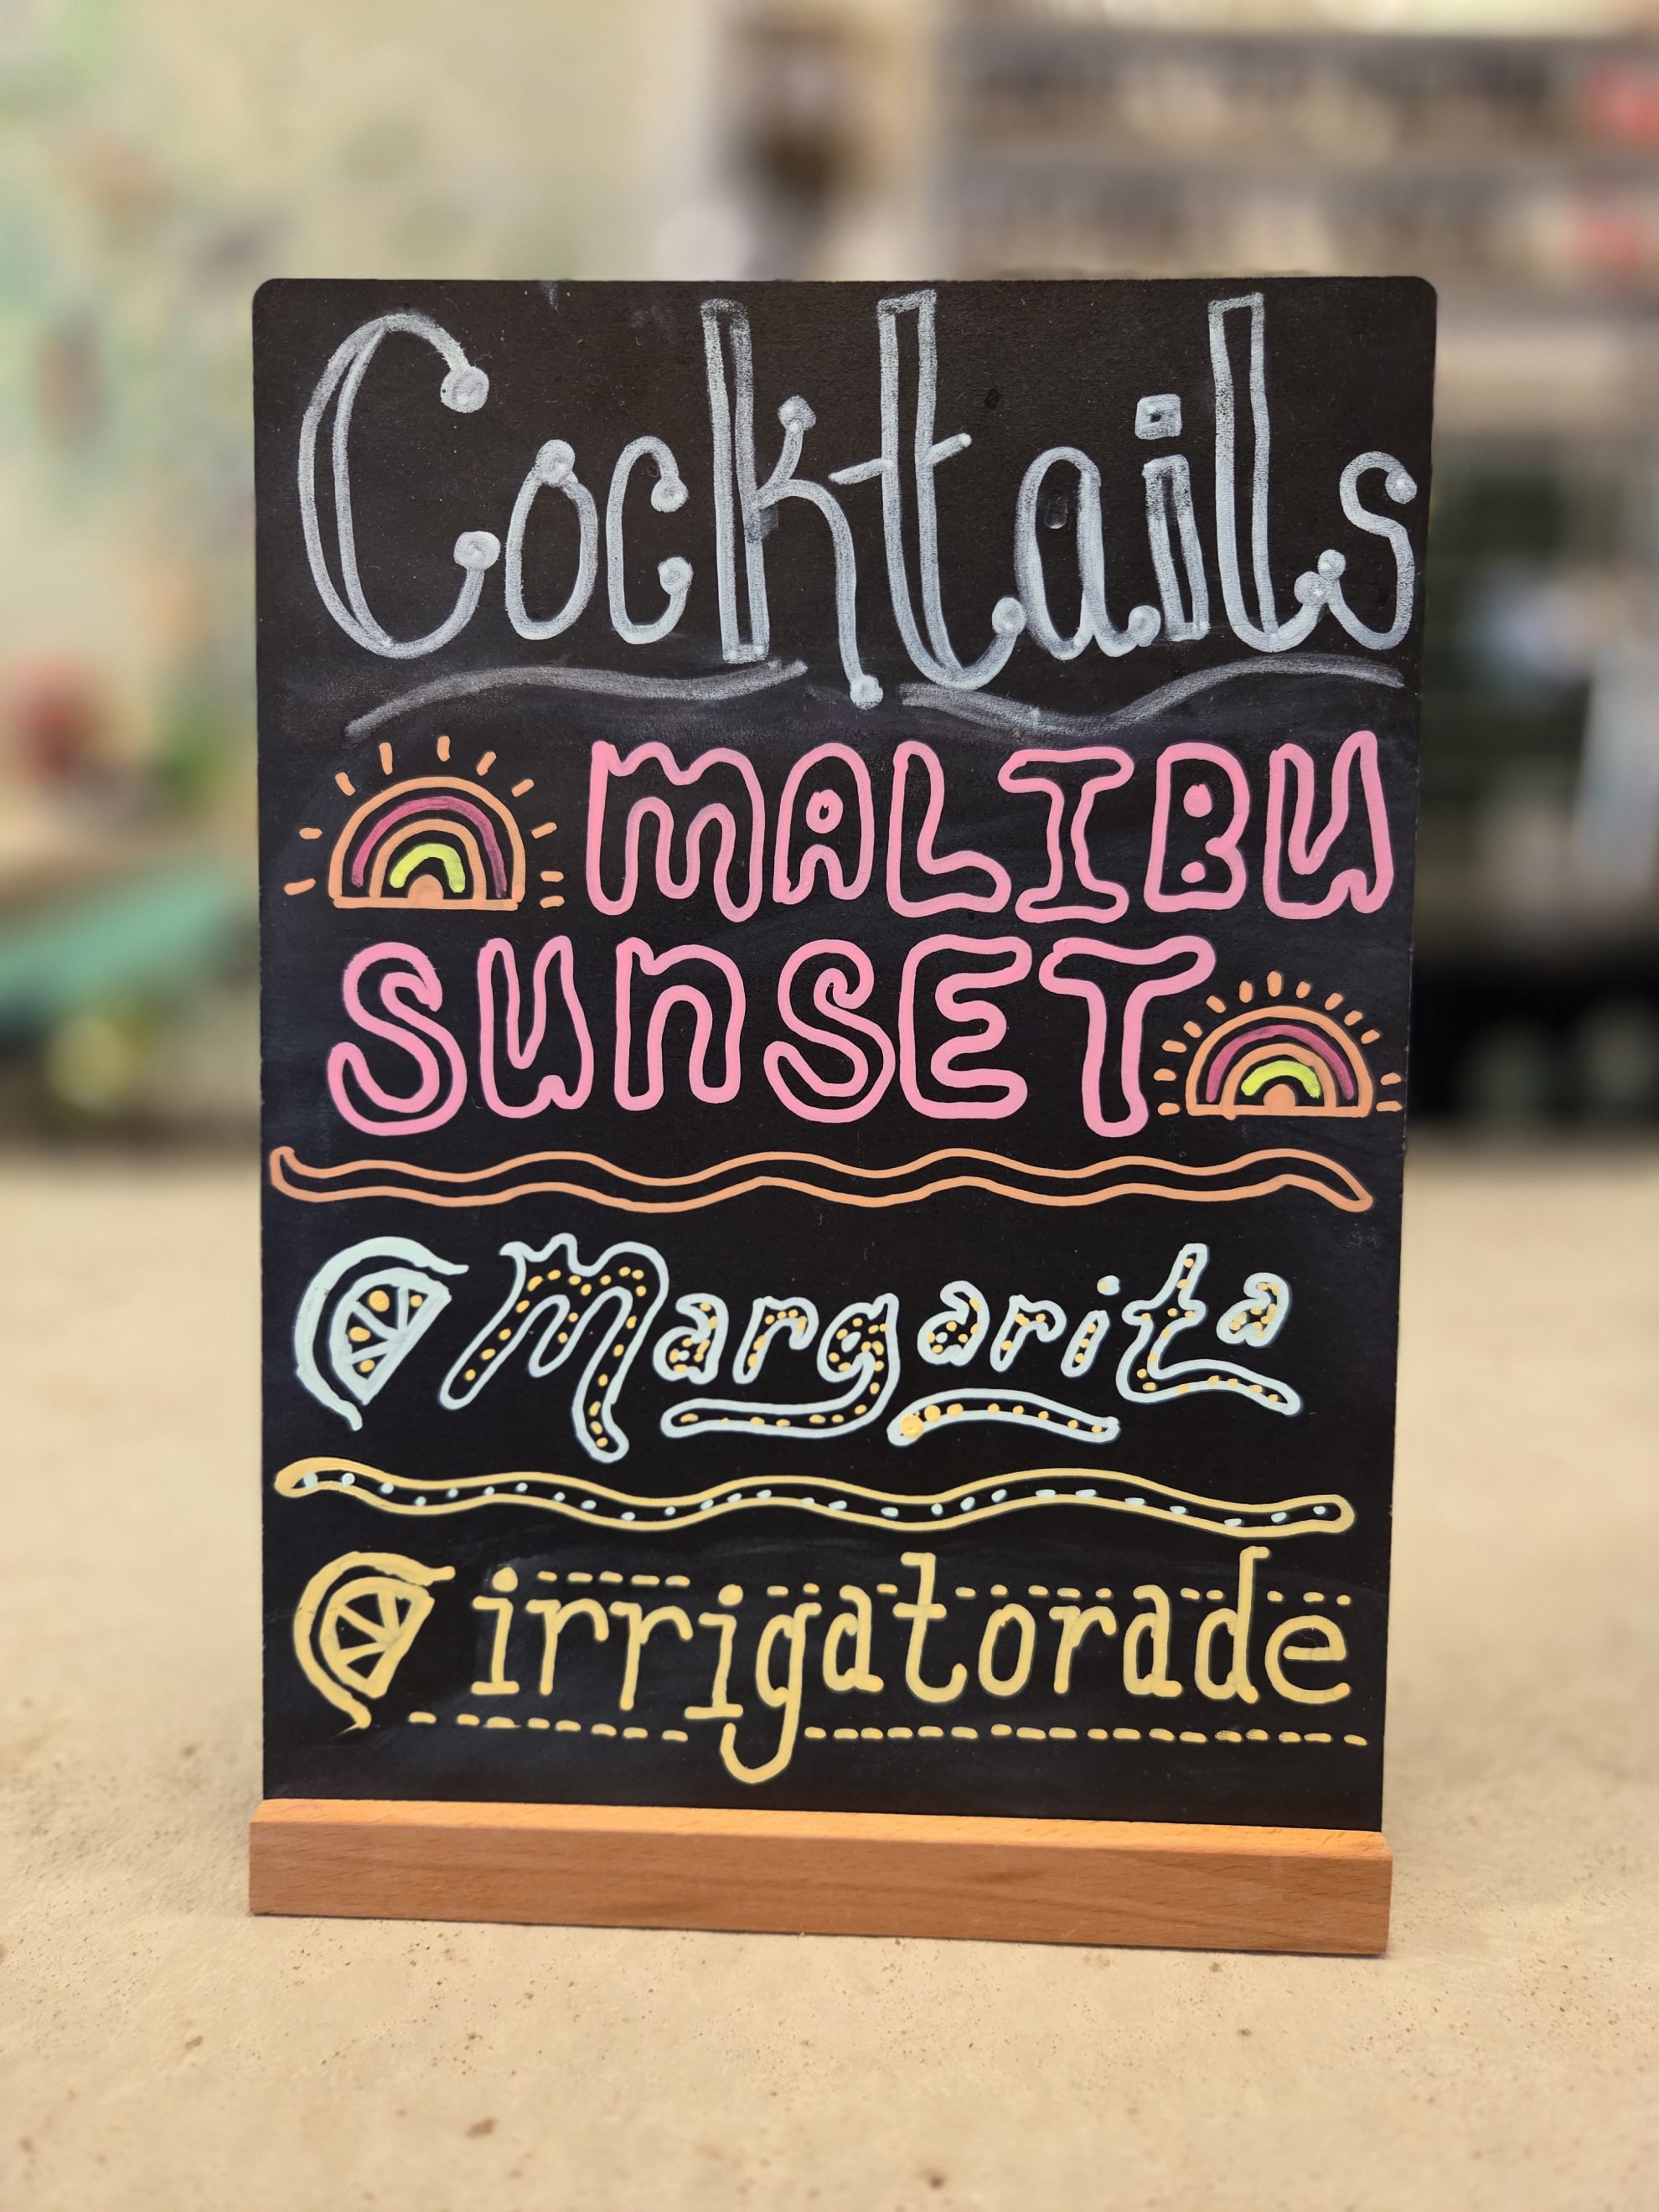 Cocktails
MALIBU
SUNSET
Margarita
irrigatorade